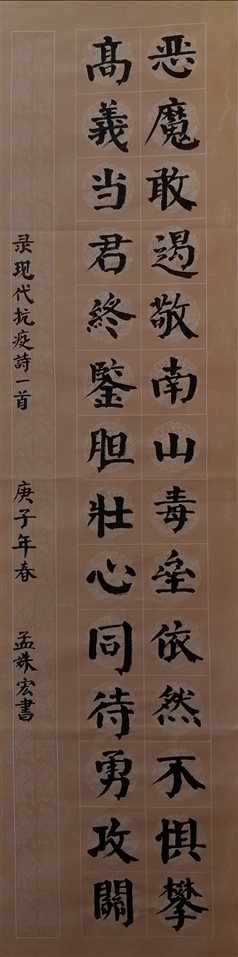 恶魔敢遏敬南山毒垒依然不惧攀
髙義当君終鑒胆壯心同待勇攻關
录现代抗疫詩一首 庚子年春 孟姝宏書